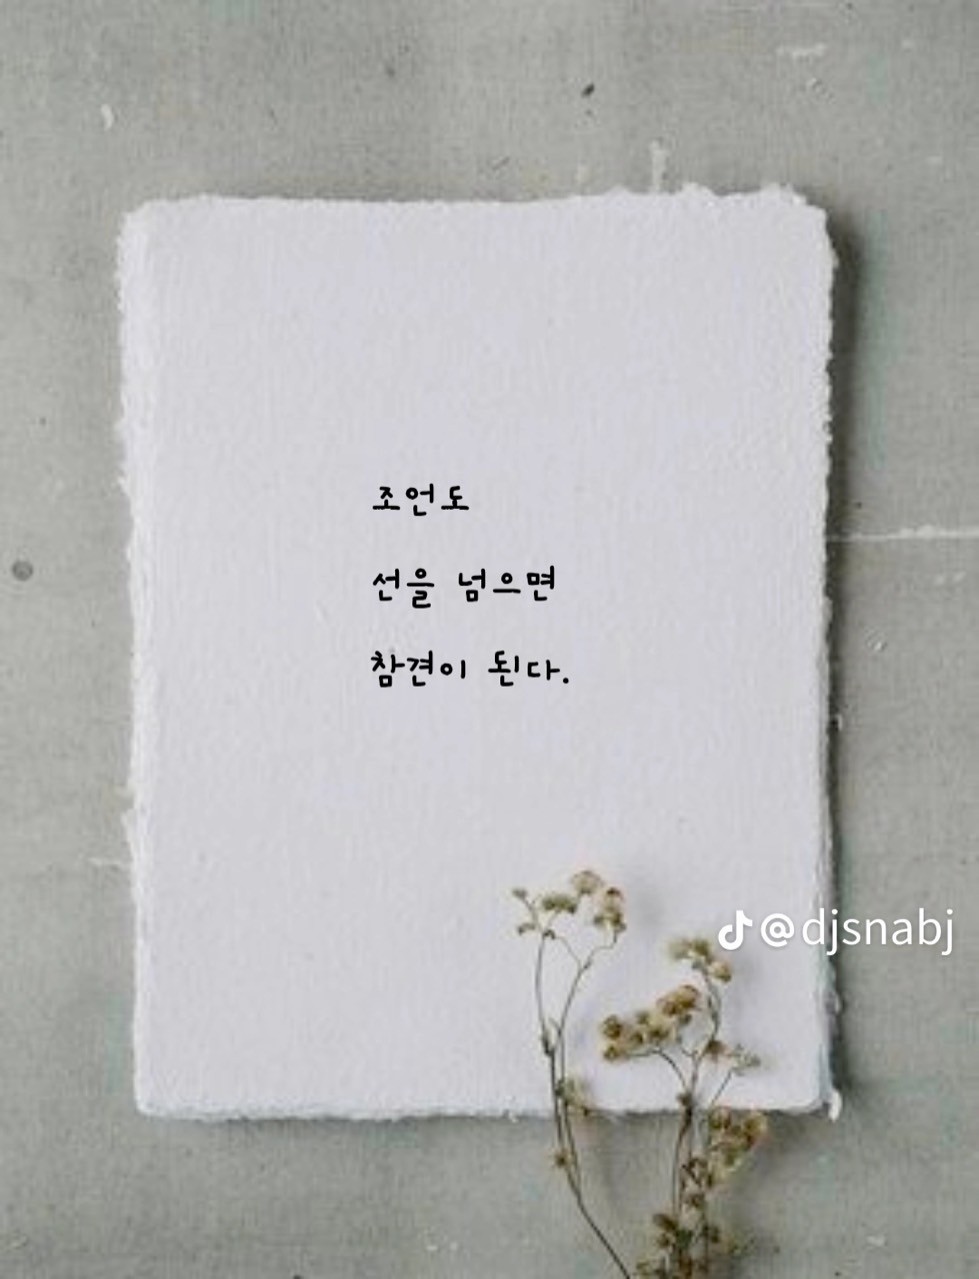 조언도
선을 넘으면
참견이 된다.
@djsnabj